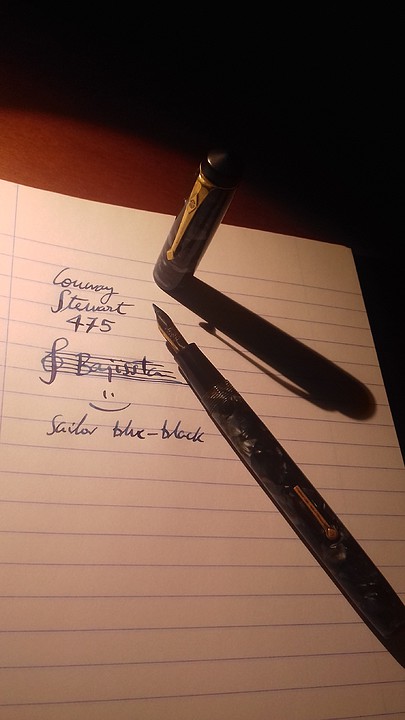 Conway
Stewart
475
Sailor blue-black